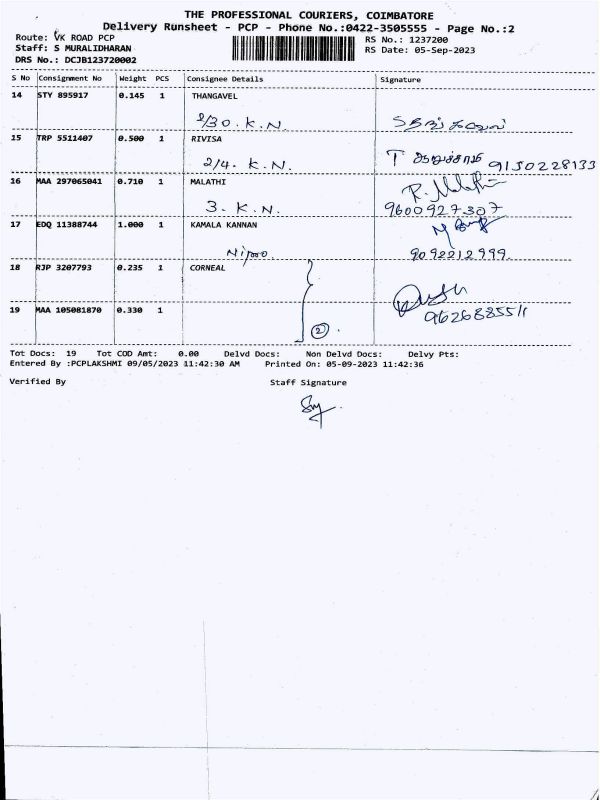 THE PROFESSIONAL COURIERS, COIMBATORE
Delivery Runsheet - PCP - Phone No.:0422-3505555 - Page No.:2
Route: VK ROAD PCP RS No.: 1237200
Staff: S MURALIDHARAN RS Date: 05-Sep-2023
DRS No.: DCJB123720002
S No Consignment No Weight PCS Consignee Details Signature
14 STY 895917 0.145 1 THANGAVEL
2/30. K.N.
15 TRP 5511407 0.500 1 RIVISA
2/4. K.N. T 9150228133
16 MAA 297065041 0.710 1 MALATHI
3. K.N. 9600927307
17 EDQ 11388744 1.000 1 KAMALA KANNAN
9092212999.
18 RJP 3207793 0.235 1 CORNEAL
19 MAA 105081870 0.330 1 9626885511
2
Tot Docs: 19 Tot COD Amt: 0.00 Delvd Docs: Non Delvd Docs: Delvy Pts:
Entered By :PCPLAKSHMI 09/05/2023 11:42:30 AM Printed On: 05-09-2023 11:42:36
Verified By Staff Signature